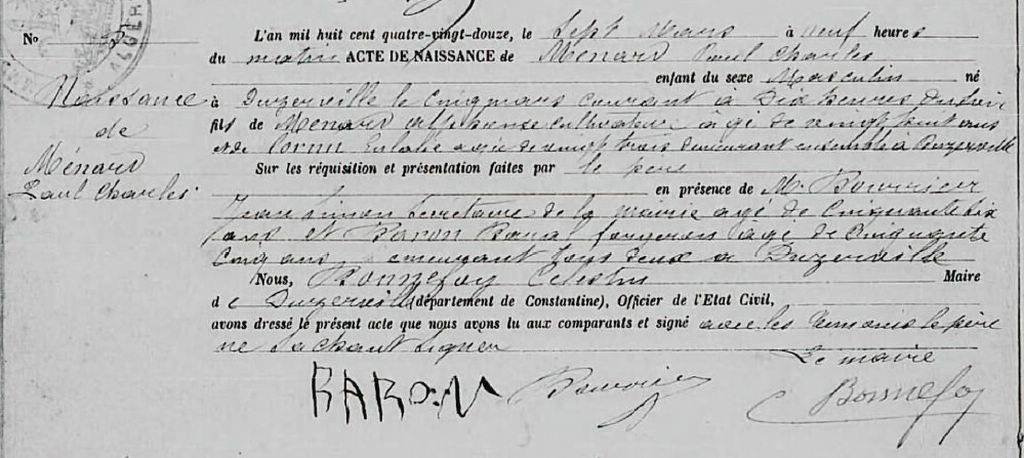 No 3 L'an mil huit cent quatre-vingt-douze, le Sept Mars à neuf heures
du matin ACTE DE NAISSANCE de Ménard Paul Charles
enfant du sexe Masculin né
Naissance
de
Ménard
Paul Charles
à Duzerville le Cinq mars courant à Dix heures du soir
fils de Ménard cultivateur âgé de vingt huit ans
et de Eulalie agée de vingt trois demeurant ensemble à Duzerville
Sur les réquisition et présentation faites par le père
en présence de M. Bouvrier
Jean Simon Secrétaire de la mairie agé de Cinquante six
ans et Baron forgeron agé de Cinquante
Cinq ans demeurant tous deux a Duzerville
Nous, Bonnefoy Celestin Maire
de Duzerville (département de Constantine), Officier de l'Etat Civil,
avons dressé le présent acte que nous avons lu aux comparants et signé avec les temoins le père
ne Sachant Signer
Le maire
BARON Bouvrier Bonnefoy